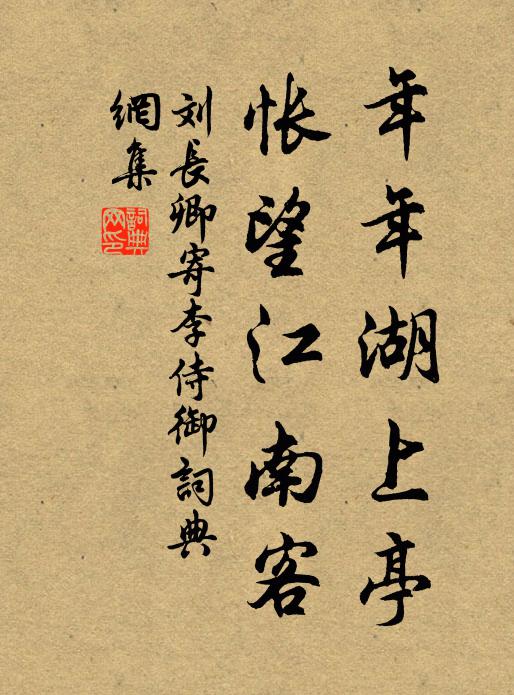 年年湖上亭
悵望江南客
刘長卿寄李侍御詞典
網集
詞典
网印